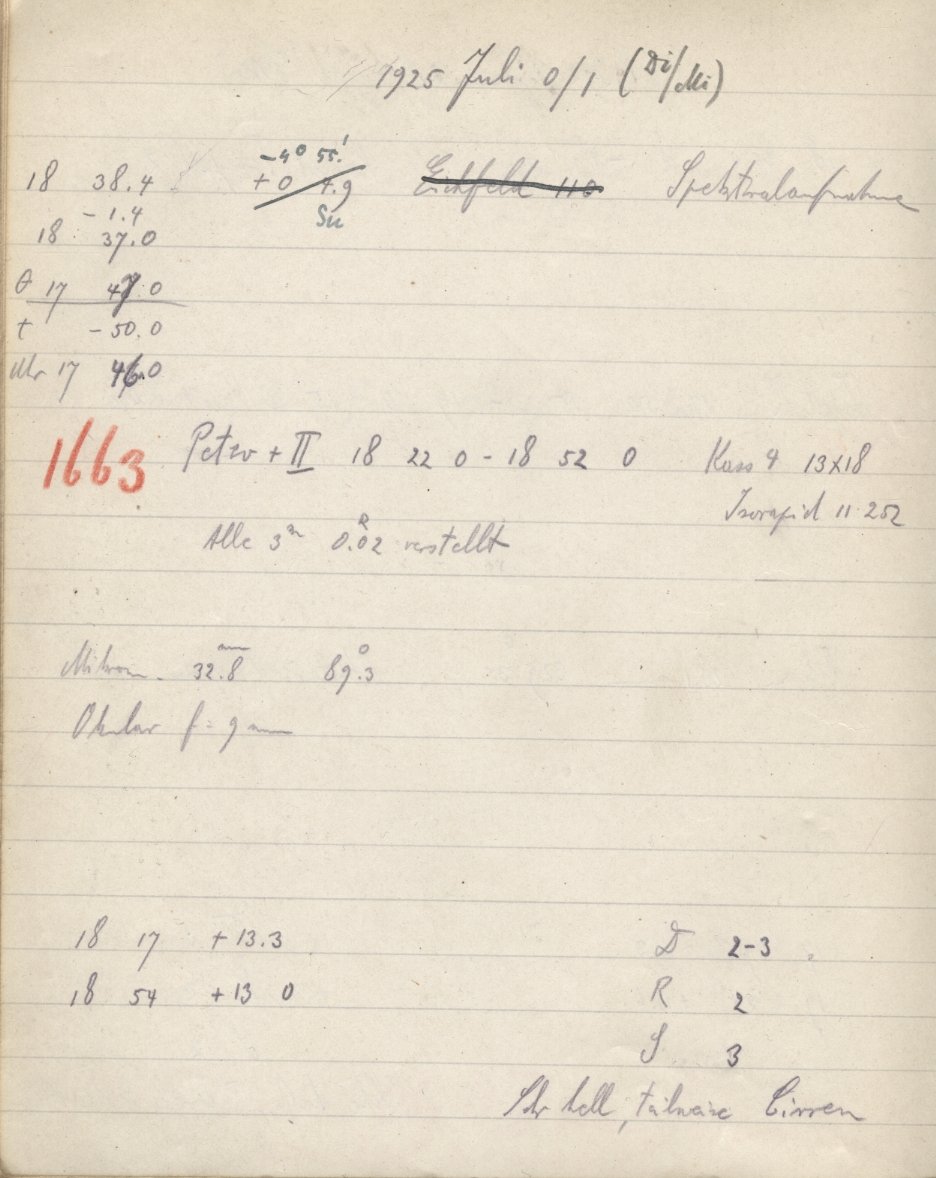 1925 Juli 0/1 (Di/Mi)
-4° 55.'
18 38.4 +0 4.9 Eichfeld 110 Spektralaufnahme
-1.4 Su
18 37.0
θ 17 47.0
t -50.0
Uhr 17 46.0
1663 Petzv + II 18 22 0 - 18 52 0 Kass 4 13x18
Isorapid 11 252
Alle 3m 0.R02 verstellt
Mikrom. 32.8mm 89.°3
Okular f = 9 mm
18 17 +13.3 D 2-3
18 54 +13 0 R 2
S 3
Sehr hell, teilweise Cirren